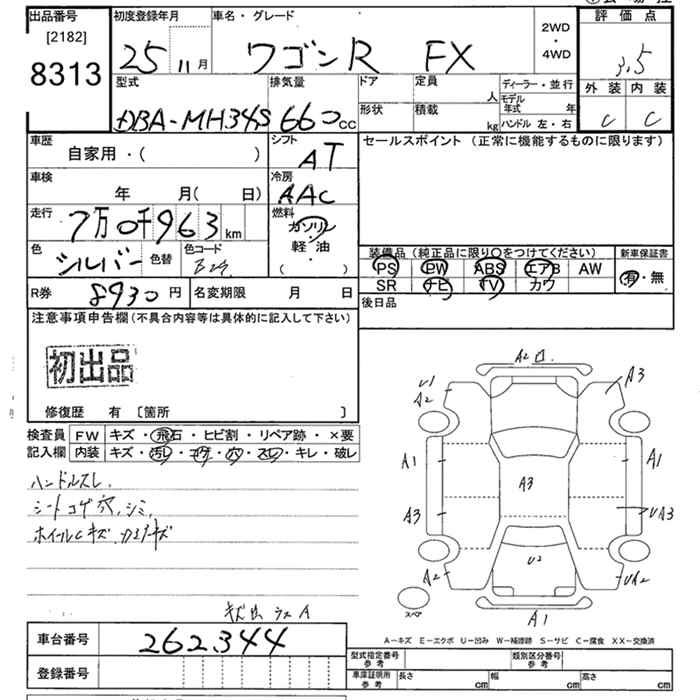 出品番号 初度登録年月 車名・グレード 2WD・4WD 評価点
[2182]
8313
25 11月 ワゴンR FX 3.5
型式 排気量 ドア 定員 人 ディーラー・並行 外装 内装
DBA-MH34S 660cc 形状 積載 kg モデル年式 年 ハンドル 左・右 C C
車歴 シフト セールスポイント (正常に機能するものに限ります)
自家用・( ) AT
車検 冷房
年 月( 日) AAC
走行 燃料
7万0千963km ガソリン
軽・油
( )
色 シルバー 色替 色コード
装備品 (純正品に限り○をつけてください) 新車保証書
PS PW ABS エアB AW 有・無
SR ナビ TV カワ
R券 8930円 名変期限 月 日 後日品
注意事項申告欄(不具合内容等は具体的に記入して下さい)
初出品
修復歴 有 [箇所 ]
検査員 FW キズ・飛石・ヒビ割・リペア跡・×要
記入欄 内装 キズ・汚レ・コゲ・穴・スレ・キレ・破レ
ハンドルスレ
シートコゲ穴、シミ
ホイールCキズ
A2 U1 A2 A3
A1 A3 A1
A3 UA3
A2 U2 UA2
スペア A1
A-キズ E-エクボ U-凹み W-補修跡 S-サビ C-腐食 XX-交換済
車台番号 262344
登録番号
型式指定番号 参考 類別区分番号 参考
車庫証明所 参考 長さ cm 幅 cm 高さ cm